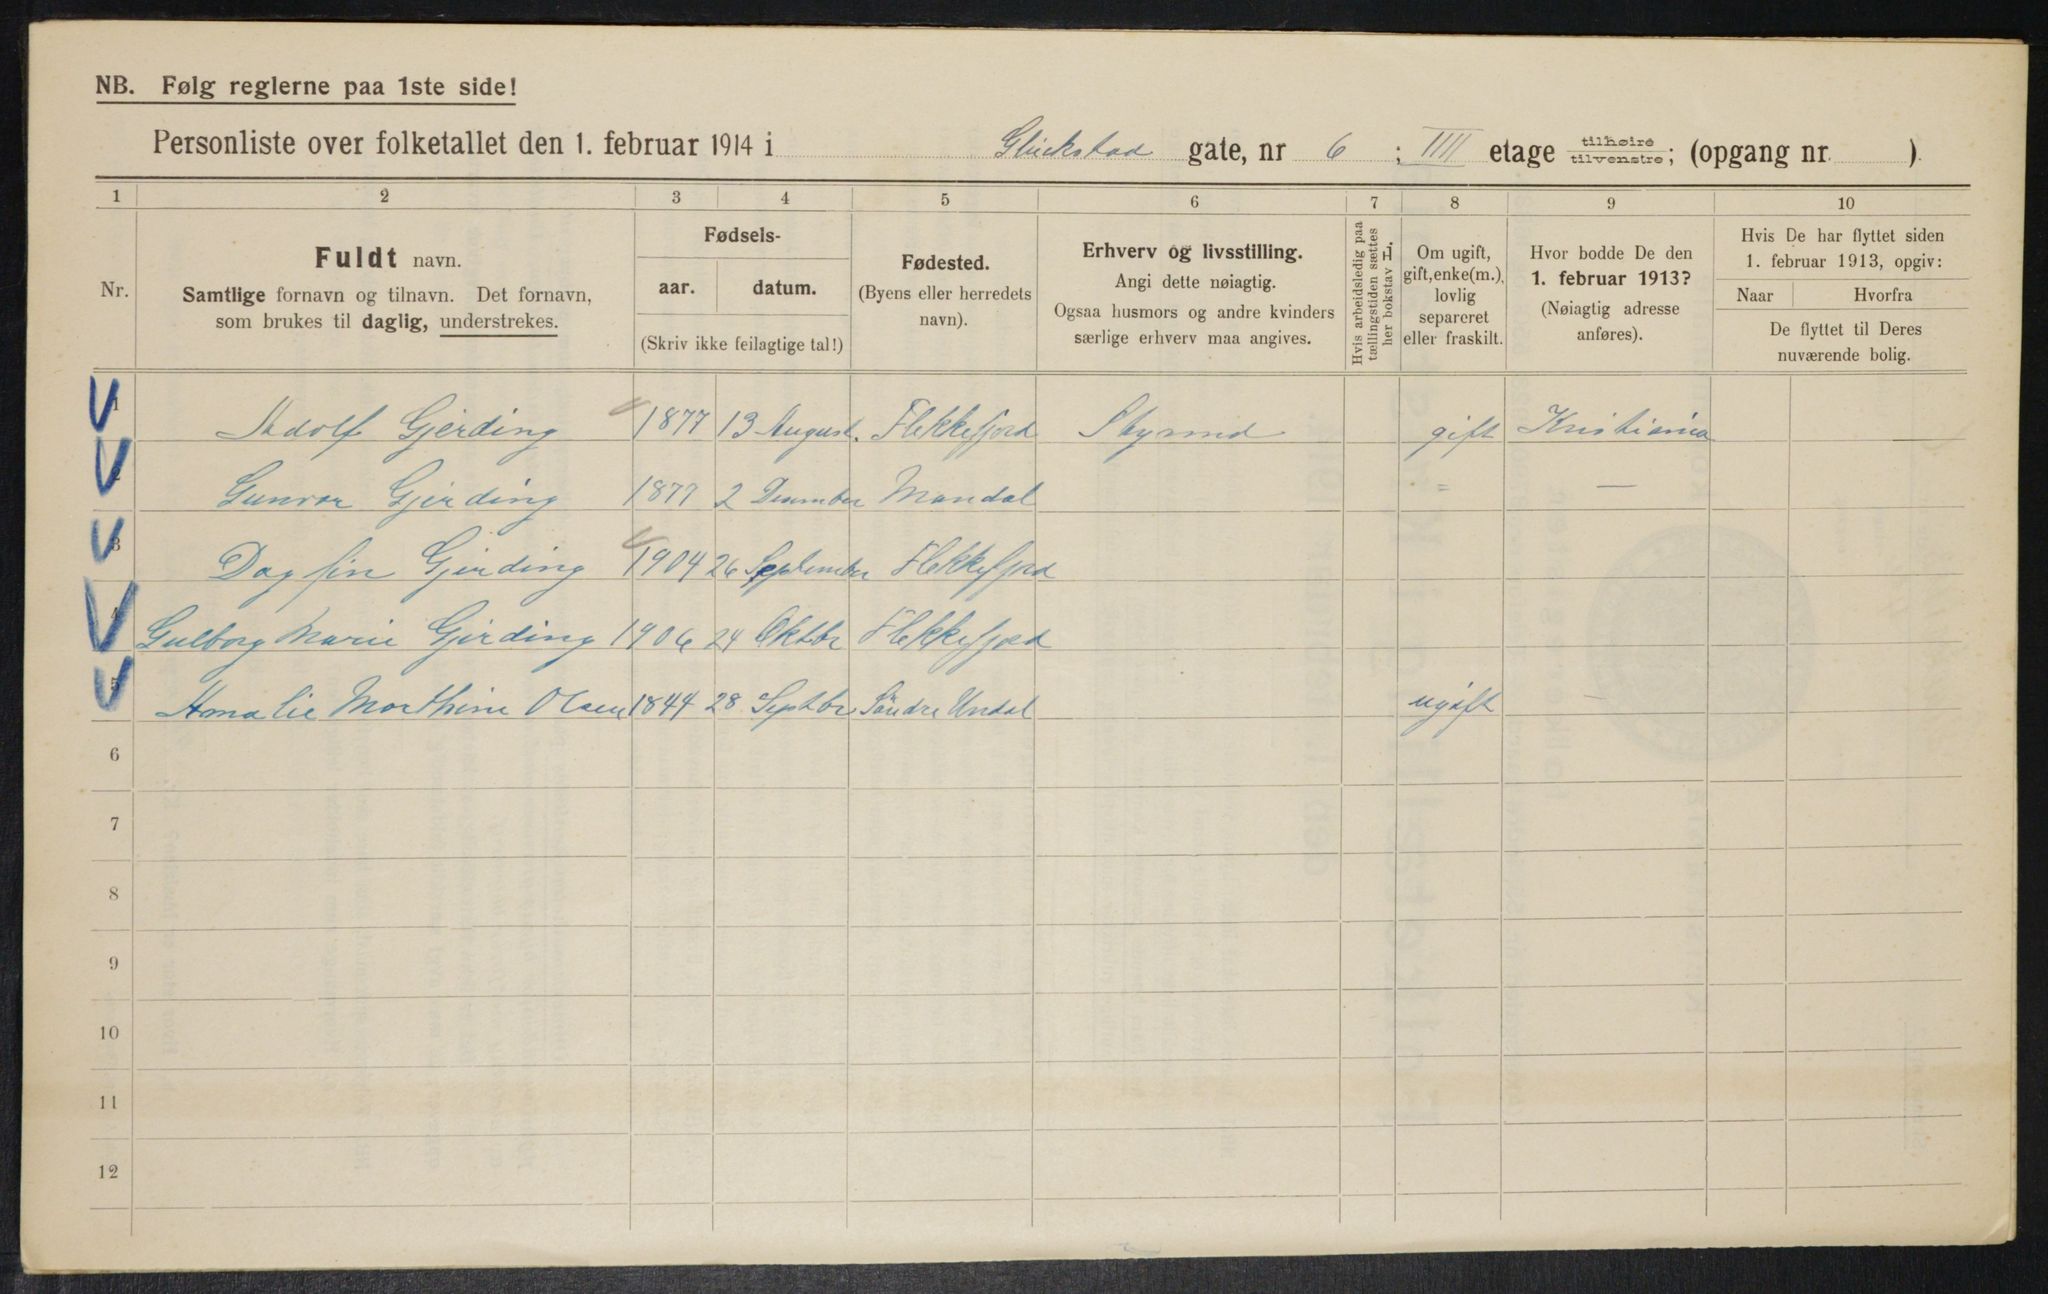 NB. Følg reglerne paa 1ste side!
Personliste over folketallet den 1. februar 1914 i Glückstad gate, nr 6 ; IIII etage tilhøire tilvenstre; (opgang nr. ).
1 2 3 4 5 6 7 8 9 10
Nr.
Fuldt navn.
Samtlige fornavn og tilnavn. Det fornavn,
som brukes til daglig, understrekes.
Fødsels-
aar. datum.
(Skriv ikke feilagtige tal!)
Fødested.
(Byens eller herredets
navn).
Erhverv og livsstilling.
Angi dette nøiagtig.
Ogsaa husmors og andre kvinders
særlige erhverv maa angives.
Hvis arbeidsledig paa
tællingstiden sættes
her bokstav L.
Om ugift,
gift, enke(m.),
lovlig
separeret
eller fraskilt.
Hvor bodde De den
1. februar 1913?
(Nøiagtig adresse
anføres).
Hvis De har flyttet siden
1. februar 1913, opgiv:
Naar Hvorfra
De flyttet til Deres
nuværende bolig.
1 Adolf Gjerding 1877 13 August. Flekkefjord Styrmd gift Kristiania
2 Gunvor Gjerding 1877 2 Desember Mandal " —
3 Dagfin Gjerding 1904 26 September Flekkefjord
4 Gulborg Marie Gjerding 1906 24 Oktbr Flekkefjord
5 Amalie Morthine Olsen 1844 28 Septbr Söndre Undal ugift —
6
7
8
9
10
11
12